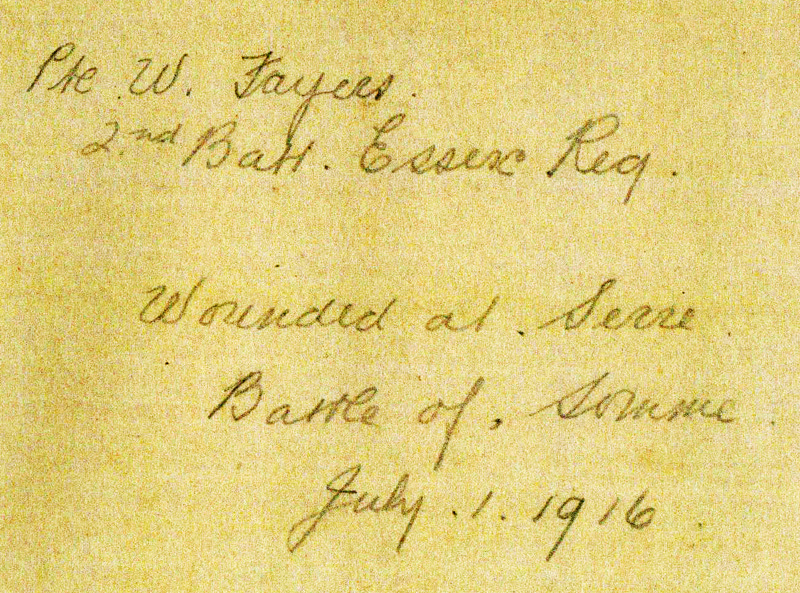 Pte W. Fayers.
2nd Batt. Essex Reg.
Wounded at. Serre
Battle of. Somme.
July. 1. 1916.